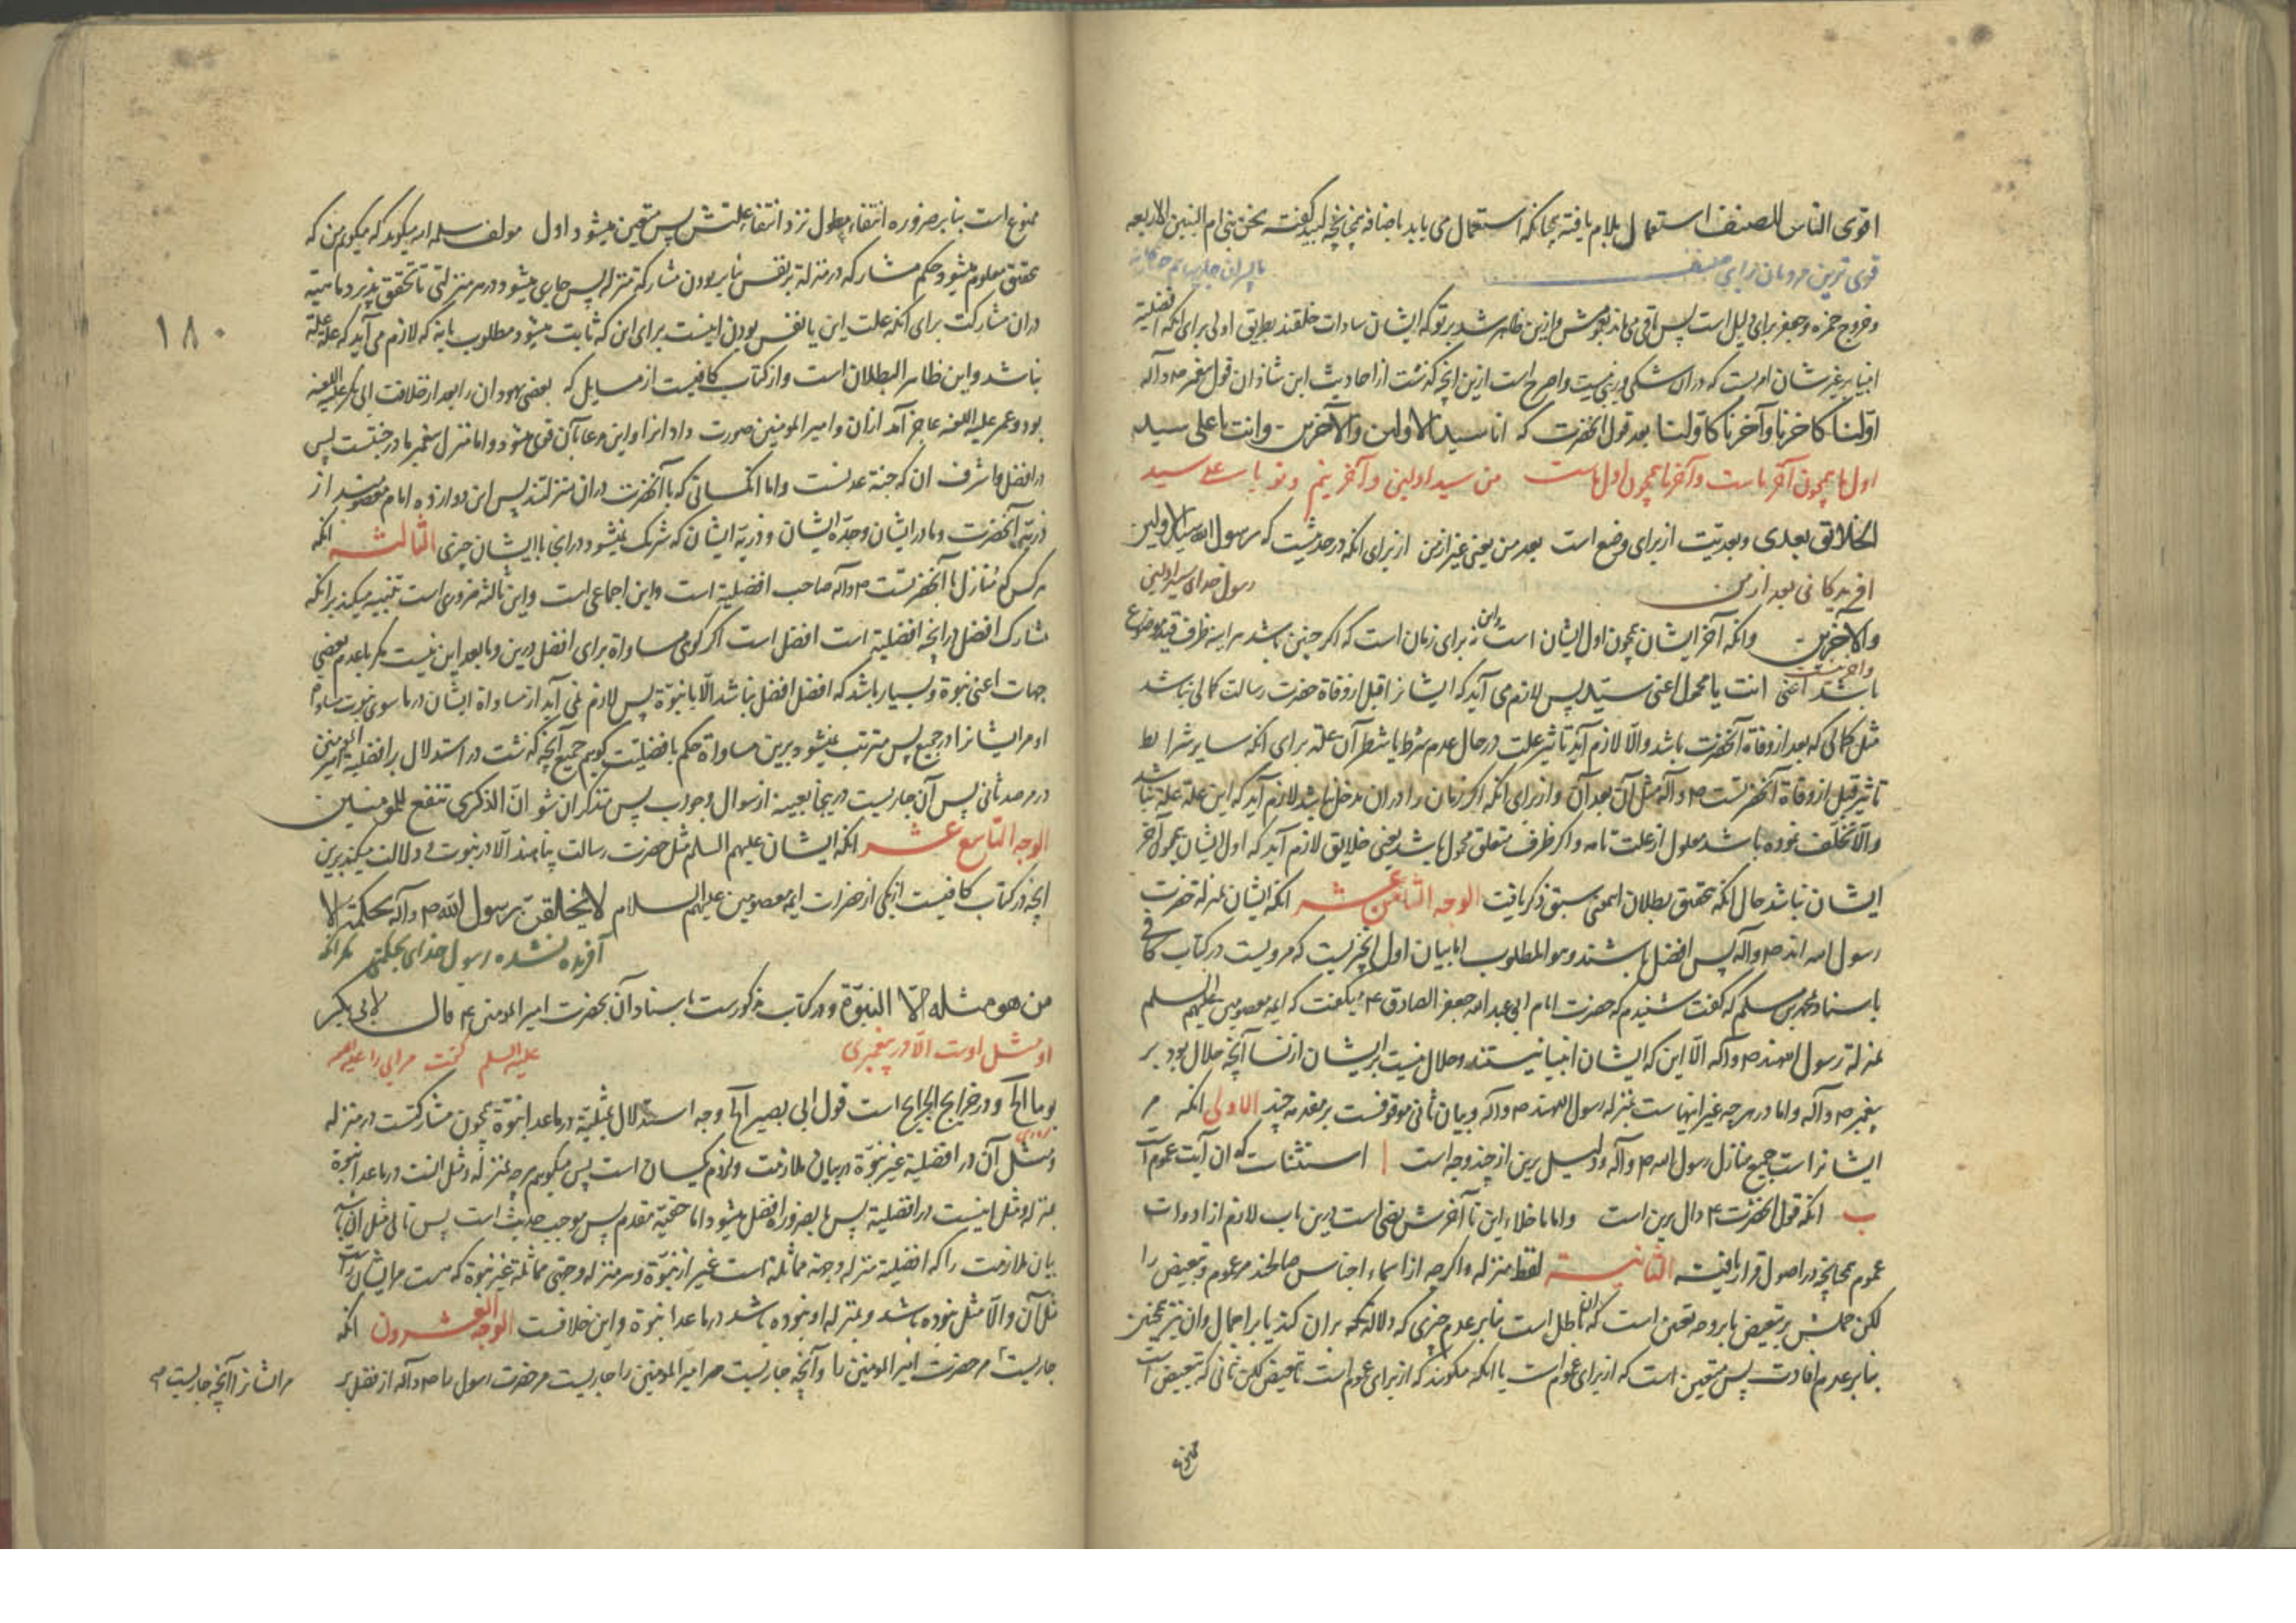 اقوی الناس للمصنف استعمال بلام یافته همچنانکه استعمال می یابد باضافه همچنانچه لبید گفته نحن بنی ام البنین الاربعه
قوی ترین مردمان برای مصنف
و خروج حمزه و جعفر برای دلیل است پس باقی می ماند بعمومش و ازین ظاهر شد بر تو که ایشان سادات خلقند بطریق اولی برای انکه افضلیة
انبیا بر غیر شان امریست که در ان شکی و ریبی نیست و اصرح است ازین انچه گذشت از احادیث ابن شاذان قول پیغمبر ص و آله
اوّلنا کآخرنا و آخرنا کاوّلنا بعد قول آنحضرت که انا سید الاولین والآخرین وانت یا علی سید
اول ما همچون آخر ماست و آخر ما همچون اول ماست من سید اولین و آخرینم و تو یا علی سید
الخلایق بعدی و بعدیت از برای وضع است بعد من یعنی غیر از من از برای انکه در حدیثست که رسول الله سید الاولین
آفریدگانی بعد از من
رسول خدای سید اولین
والآخرین وانکه آخر ایشان همچون اول ایشان است و این نه برای زمان است که اگر چنین باشد هر اینه ظرف قید موضوع
و آخرینست
باشد اعنی انت یا محمول اعنی سیّد پس لازم می آید که ایشانرا قبل از وفاة حضرت رسالت کمالی نباشد
مثل کمالی که بعد از وفاة آنحضرت باشد والّا لازم آید تاثیر علت در حال عدم شرط یا شطر آن علة برای انکه سایر شرایط
تاثیر قبل از وفاة آنحضرتست ص و آله مثل آن بعد آن و از برای انکه اگر زمان را در ان مدخل باشد لازم آید که این علة علة نباشد
والّا تخلف نموده باشد معلول از علت تامه و اگر ظرف متعلق محمول باشد یعنی خلایق لازم آید که اول ایشان همچون آخر
ایشان نباشد حال انکه تحقیق بطلان اسمعنی سبق ذکر یافت الوجه الثامن عشر انکه ایشان بمنزلة حضرت
رسول الله اند ص و آله پس افضل باشند و هو المطلوب اما بیان اول خبریست که مرویست در کتاب کافی
باسناد محمد بن مسلم که گفت شنیدم که حضرت امام ابی عبد الله جعفر الصادق ع میگفت که ایمه معصومین علیهم السلم
بمنزلة رسول الله اند ص و آله الّا این که ایشان انبیا نیستند و حلال نیست بر ایشان از نسا آنچه حلال بود بر
پیغمبر ص و آله و اما در هر چه غیر اینهاست بمنزله رسول الله اند ص و آله و بیان ثانی موقوفست بر مقدمه چند الاولی انکه مر
ایشانراست جمیع منازل رسول الله ص و آله و دلیل برین از چند وجه است ا استثناست که ان آیت عموم است
ب انکه قول آنحضرت ع دال برین است و اما ما خلا این تا آخرش نص است درین باب لازم از ادوات
عموم همچنانچه در اصول قرار یافته الثانیة لفظ منزله و اگر چه از اسماء اجناس صالحند مر عموم و تبعیض را
لکن حملش بر تبعیض یا بر وجه تعین است که آن باطل است بنا بر عدم چیزی که دلالة کند بر ان کند یا بر اجمال و ان نیز همچنین
بنا بر عدم افادت پس متعین است که از برای عموم است یا انکه میگویند که از برای عموم است یا تبعیض لکن ثانی که تبعیض است
ممنوع
ممنوع است بنا بر ضروره انتفاء معلول نزد انتفاء علتش پس متعین میشود اول مولف سلمه الله میگوید که میگویم من که
تحقق معلوم میشود حکم مشارکه در منزلة بر نفس بنا بر بودن مشارکة منزله پس جاری میشود در هر منزلتی تا تحقق پذیرد ماهیة
دران مشارکت برای انکه علت این یا نفس بودن اینست برای این که ثابت میشود مطلوب یا نه که لازم می آید که علة علة
نباشد و این ظاهر البطلان است و از کتاب کافیست از مسایل که بعضی یهودان را بعد از خلافت ابی بکر علیه اللعنه
بود و عمر علیه اللعنه عاجز آمد ازان و امیر المومنین صورت داد انرا و این مدعا بآن قوی میشود و اما منزل پیغمبر ما در جنتست پس
در افضل و اشرف ان که جنة عدنست و اما انکسانی که با آنحضرت دران منزلتند پس این دوازده امام معصومند از
ذریتی آنحضرت و مادر ایشان و جدّة ایشان و ذریّة ایشان که شریک نمیشود در انجا با ایشان چیزی الثالثه انکه
هر کس که منازل با آنحضرتست ص و آله صاحب افضلیة است و این اجماعی است و این ثالثه ضروری است تنبیه میکند برانکه
مشارک افضل در انچه افضلیة است افضل است اگر گویی مساواة برای افضل درین و ما بعد این نیست مگر با عدم بعضی
جهات اعنی نبوة و بسیار باشد که افضل افضل نباشد الّا با نبوّة پس لازم نمی آید از مساواة ایشان در ما سوی نبوت مساواة
او مر ایشانرا در جمیع پس مترتب نمیشود برین مساواة حکم بافضلیّت گویم جمیع آنچه گذشت در استدلال بر افضلیة امیر المومنین
در مرصد ثانی پس آن جاریست در ینجا بعینه از سوال و جواب پس متذکر ان شو انّ الذکری تنفع للمومنین
الوجه التاسع عشر انکه ایشان علیهم السلم مثل حضرت رسالت پناهند الّا در نبوت و دلالت میکند برین
انچه در کتاب کافیست از یکی از حضرات ایمه معصومین علیهم السلام لا یخلقنّ رسول اللّه ص و آله بحکمة الا
آفریده نشده رسول خدای بحکمتی مگر انکه
من هو مثله الّا النبوّة و در کتاب مذکورست باسناد آن بحضرت امیر المومنین ع قال لابی بکر
او مثل اوست الّا در پیغمبری
علیه السلم گفت مر ابی را علیه اللعنه
یوما الخ و در خرایج الجرایح است قول ابی بصیر الخ وجه استدلال بمثلیّة در ما عدا نبوّة همچون مشارکتست در منزله
و مثل آن در افضلیة غیر نبوّة در بیان ملازمت و لازم یکسان است پس میگویم هر چه بمنزله و مثل انست در ما عدا نبوة
بمنزله و مثل اینست در افضلیة پس بالضروره افضل میشود اما حقیّة مقدم پس بموجب حدیث است پس تالی مثل آن باشد
بیان ملازمت را که افضلیة منزله و جهة مماثلة است غیر از نبوّة و هر منزله و جهتی مماثلة غیر نبوة که هست مر ایشانراست
مثل آن والّا مثل نبوده باشد و بمنزله او نبوده باشد در ما عدا نبوة و این خلافست الوجه العشرون انکه
جاریست مر حضرت امیر المومنین را و آنچه جاریست مر امیر المومنین را جاریست مر حضرت رسول را ص و آله از فضل بر
مر ایشانرا آنچه جاریست
۱۸۰